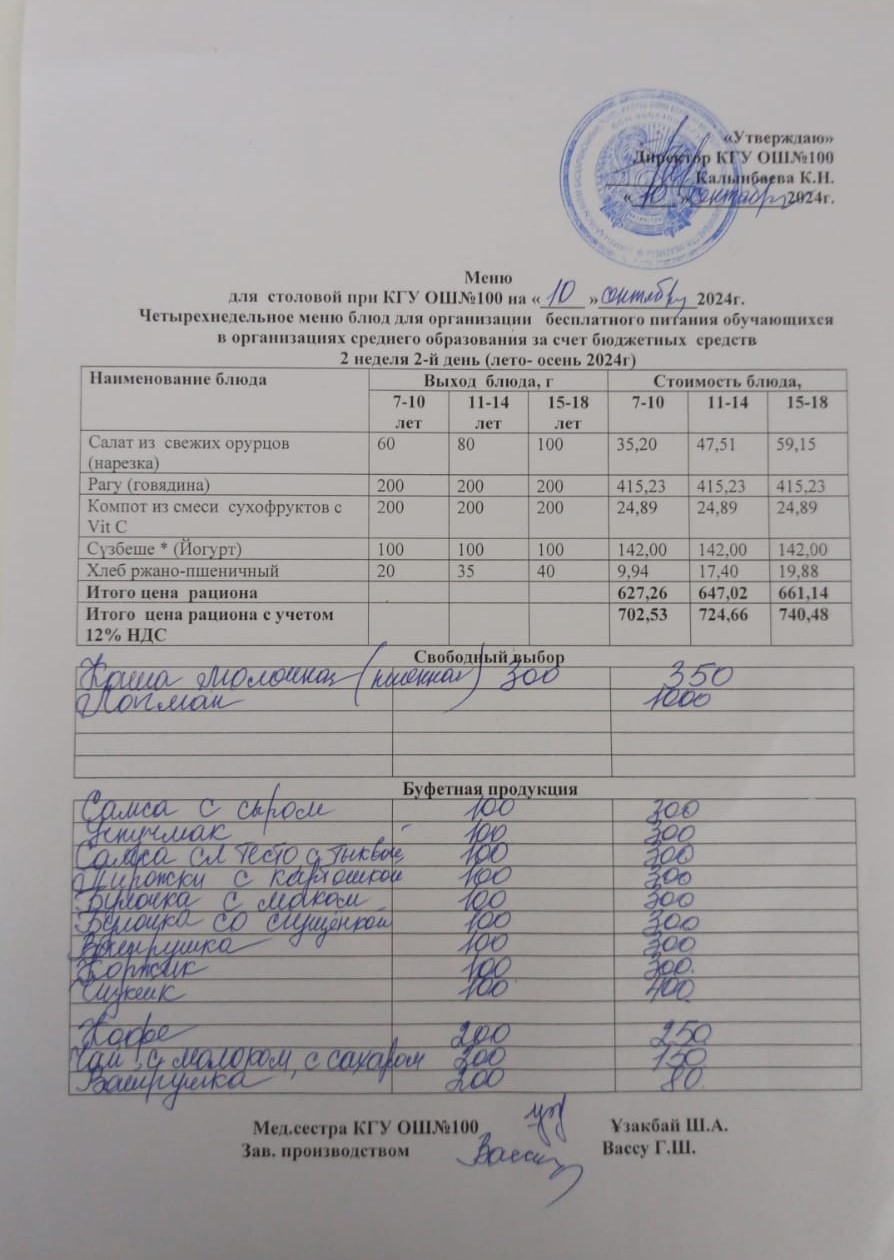 «Утверждаю»
Директор КГУ ОШ№100
Калынбаева К.Н.
« 10 » сентябрь 2024г.
Меню
для столовой при КГУ ОШ№100 на « 10 » сентябрь 2024г.
Четырехнедельное меню блюд для организации бесплатного питания обучающихся
в организациях среднего образования за счет бюджетных средств
2 неделя 2-й день (лето- осень 2024г)
Наименование блюда Выход блюда, г Стоимость блюда,
7-10 лет 11-14 лет 15-18 лет 7-10 11-14 15-18
Салат из свежих орурцов (нарезка) 60 80 100 35,20 47,51 59,15
Рагу (говядина) 200 200 200 415,23 415,23 415,23
Компот из смеси сухофруктов с Vit C 200 200 200 24,89 24,89 24,89
Сүзбеше * (Йогурт) 100 100 100 142,00 142,00 142,00
Хлеб ржано-пшеничный 20 35 40 9,94 17,40 19,88
Итого цена рациона 627,26 647,02 661,14
Итого цена рациона с учетом 12% НДС 702,53 724,66 740,48
Свободный выбор
Каша молочная (пшенная) 300 350
Лагман 1000
Буфетная продукция
Самса с сыром 100 300
Учпучмак 100 300
Самса сл тесто с тыквой 100 300
Пирожки с картошкой 100 300
Булочка с маком 100 300
Булочка со сгущенкой 100 300
Ватрушка 100 300
Коржик 100 300
Чизкейк 100 400
Кофе 200 250
Чай с молоком, с сахаром 200 150
200 80
Мед.сестра КГУ ОШ№100 Ұзакбай Ш.А.
Зав. производством Вассу Г.Ш.